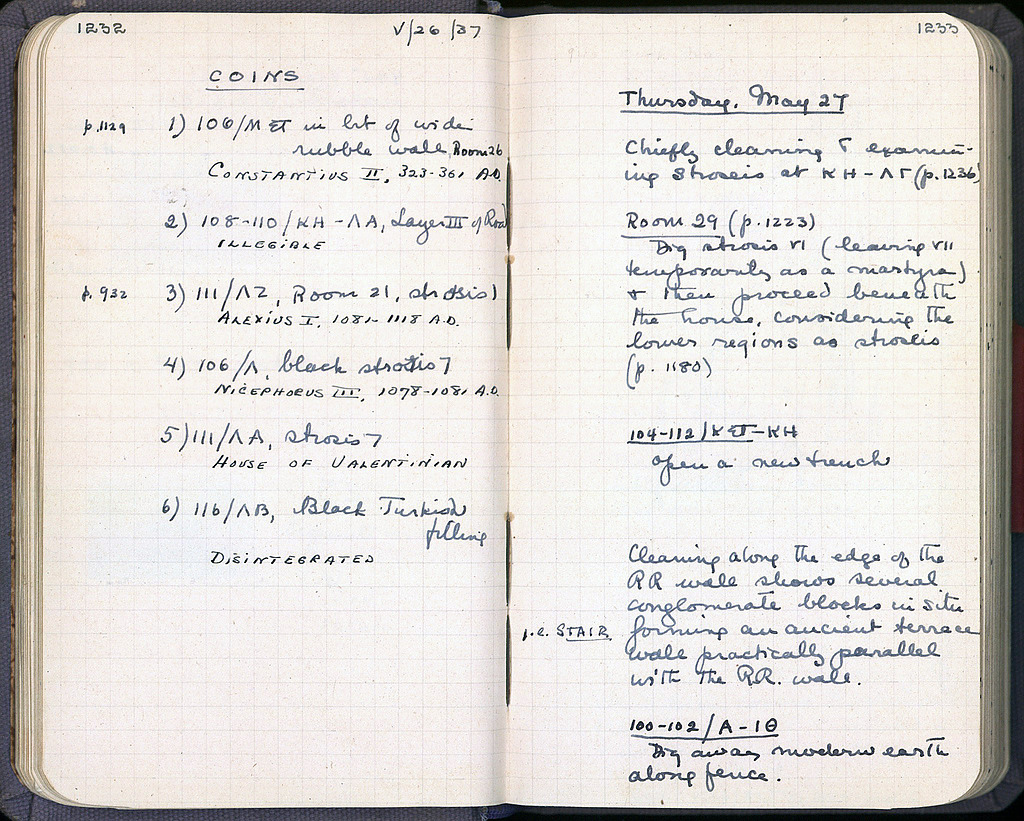 1232
V/26/37
COINS
p.1129
1) 106/ΜΣΤ in bit of wide
rubble wall, Room 26
CONSTANTIUS II, 323-361 A.D.
2) 108-110/ΚΗ-ΛΑ, Layer III of Road
ILLEGIBLE
p. 932
3) 111/ΛΖ, Room 21, strosis 1
ALEXIUS I, 1081-1118 A.D.
4) 106/Λ, black strosis 7
NICEPHORUS III, 1078-1081 A.D.
5) 111/ΛΑ, strosis 7
HOUSE OF VALENTINIAN
6) 116/ΛΒ, Black Turkish
filling
DISINTEGRATED
1233
Thursday, May 27
Chiefly cleaning & examin-
ing stroseis at ΚΗ-ΛΓ (p.1236)
Room 29 (p.1223)
Dig strosis VI (leaving VII
temporarily as a martyra)
& then proceed beneath
the house, considering the
lower regions as stroseis
(p. 1180)
104-112/ΚΣΤ-ΚΗ
open a new trench
Cleaning along the edge of the
RR wall shows several
conglomerate blocks in situ
i.e. STAIR
forming an ancient terrace
wall practically parallel
with the R.R. wall.
100-102/Α-ΙΘ
Dig away modern earth
along fence.